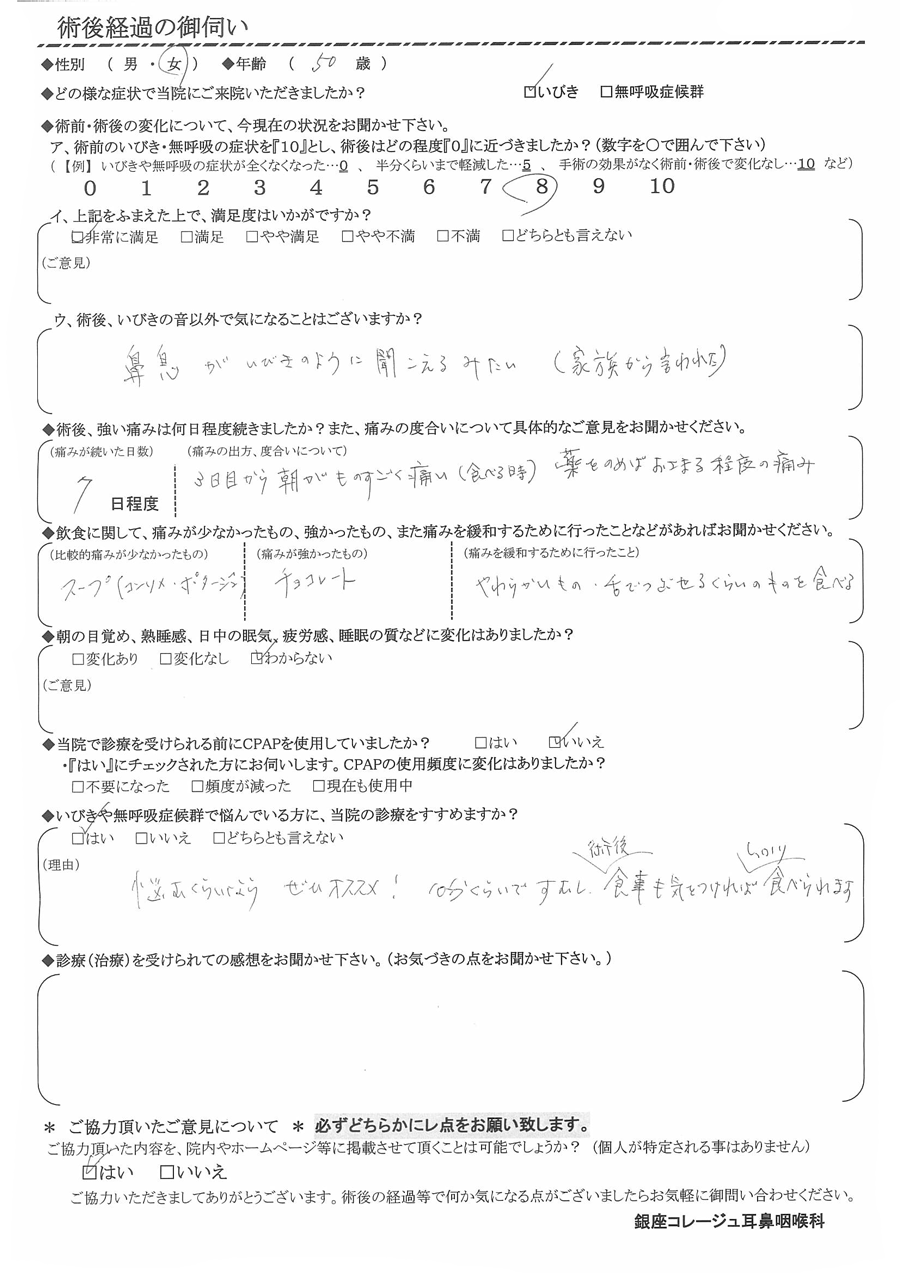 術後経過の御伺い
◆性別 ( 男 ・ 女 ) ◆年齢 ( 50 歳 )
◆どの様な症状で当院にご来院いただきましたか? ☑いびき □無呼吸症候群
◆術前・術後の変化について、今現在の状況をお聞かせ下さい。
ア、術前のいびき・無呼吸の症状を『10』とし、術後はどの程度『0』に近づきましたか?(数字を〇で囲んで下さい)
(【例】いびきや無呼吸の症状が全くなくなった…0 、 半分くらいまで軽減した…5 、 手術の効果がなく術前・術後で変化なし…10 など)
0 1 2 3 4 5 6 7 8 9 10
イ、上記をふまえた上で、満足度はいかがですか?
☑非常に満足 □満足 □やや満足 □やや不満 □不満 □どちらとも言えない
(ご意見)
ウ、術後、いびきの音以外で気になることはございますか?
鼻息がいびきのように聞こえるみたい (家族から言われた)
◆術後、強い痛みは何日程度続きましたか?また、痛みの度合いについて具体的なご意見をお聞かせください。
(痛みが続いた日数) (痛みの出方、度合いについて)
7 日程度 3日目から朝がものすごく痛い(食べる時) 薬をのめばおさまる程度の痛み
◆飲食に関して、痛みが少なかったもの、強かったもの、また痛みを緩和するために行ったことなどがあればお聞かせください。
(比較的痛みが少なかったもの) (痛みが強かったもの) (痛みを緩和するために行ったこと)
スープ(コンソメ・ポタージュ) チョコレート やわらかいもの・舌でつぶせるくらいのものを食べる
◆朝の目覚め、熟睡感、日中の眠気、疲労感、睡眠の質などに変化はありましたか?
□変化あり □変化なし ☑わからない
(ご意見)
◆当院で診療を受けられる前にCPAPを使用していましたか? □はい ☑いいえ
・『はい』にチェックされた方にお伺いします。CPAPの使用頻度に変化はありましたか?
□不要になった □頻度が減った □現在も使用中
◆いびきや無呼吸症候群で悩んでいる方に、当院の診療をすすめますか?
☑はい □いいえ □どちらとも言えない
(理由)
術後
悩むくらいなら ぜひオススメ! 10分くらいですむし、食事も気をつければ食べられます
◆診療(治療)を受けられての感想をお聞かせ下さい。(お気づきの点をお聞かせ下さい。)
* ご協力頂いたご意見について * 必ずどちらかにレ点をお願い致します。
ご協力頂いた内容を、院内やホームページ等に掲載させて頂くことは可能でしょうか? (個人が特定される事はありません)
☑はい □いいえ
ご協力いただきましてありがとうございます。術後の経過等で何か気になる点がございましたらお気軽に御問い合わせください。
銀座コレージュ耳鼻咽喉科